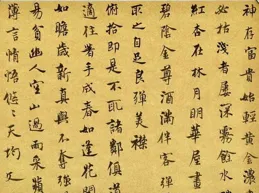 神存富貴始輕黃金濃
必枯淺者屢深霧餘水
紅杏在林月明華屋畫
碧陰金尊酒滿伴客彈
取之自足良殫美襟
俯拾即是不取諸鄰俱
適往著手成春如逢花開
如瞻歲新真與不奪強
易貧幽人空山過雨采蘋
薄言情悟悠々天鈞